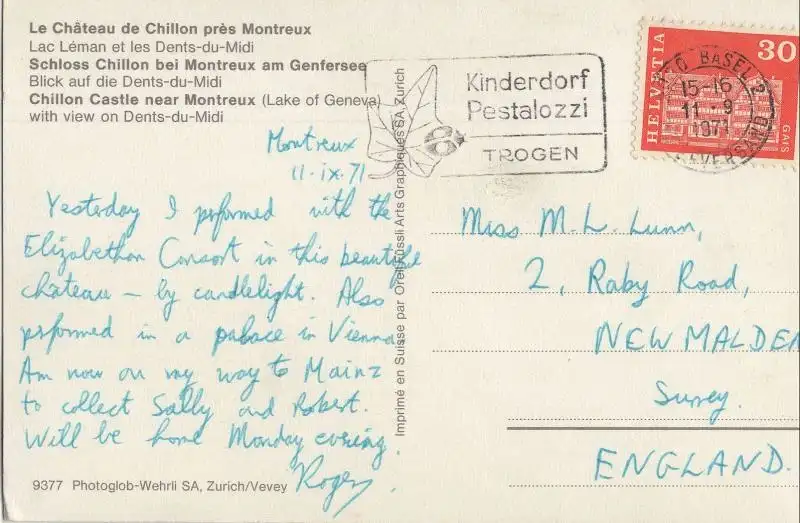 Le Château de Chillon près Montreux
Lac Léman et les Dents-du-Midi
Schloss Chillon bei Montreux am Genfersee
Blick auf die Dents-du-Midi
Chillon Castle near Montreux (Lake of Geneva)
with view on Dents-du-Midi
Montreux
11·ix·71
Yesterday I performed with the
Elizabethan Consort in this beautiful
château — by candlelight. Also
performed in a palace in Vienna.
Am now on my way to Mainz
to collect Sally and Robert.
Will be home Monday evening.
Roger
9377 Photoglob-Wehrli SA, Zurich/Vevey
Imprimé en Suisse par Orell Füssli Arts Graphiques SA, Zurich
Kinderdorf
Pestalozzi
TROGEN
HELVETIA
30
GAIS
BASEL 2
15-16
11-9
1971
Miss M. L. Lunn,
2, Raby Road,
NEW MALDEN
Surrey.
ENGLAND.